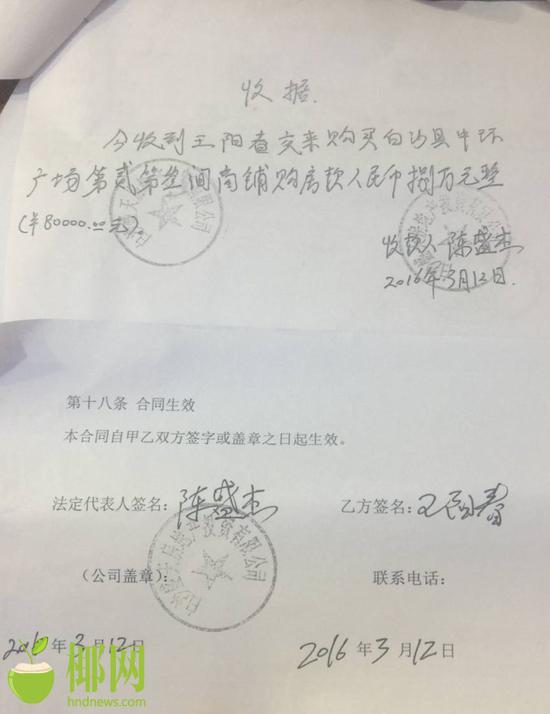 收据.
今收到王阳春交来购买白沙县中环
广场第贰第叁间商铺购房款人民币捌万元整
(￥80000.00元)。
收款人 陈盛杰
2016年3月12日.
第十八条 合同生效
本合同自甲乙双方签字或盖章之日起生效。
法定代表人签名: 陈盛杰
乙方签名: 王阳春
(公司盖章):
联系电话:
2016年3月12日
2016年3月12日
椰网
hndnews.com